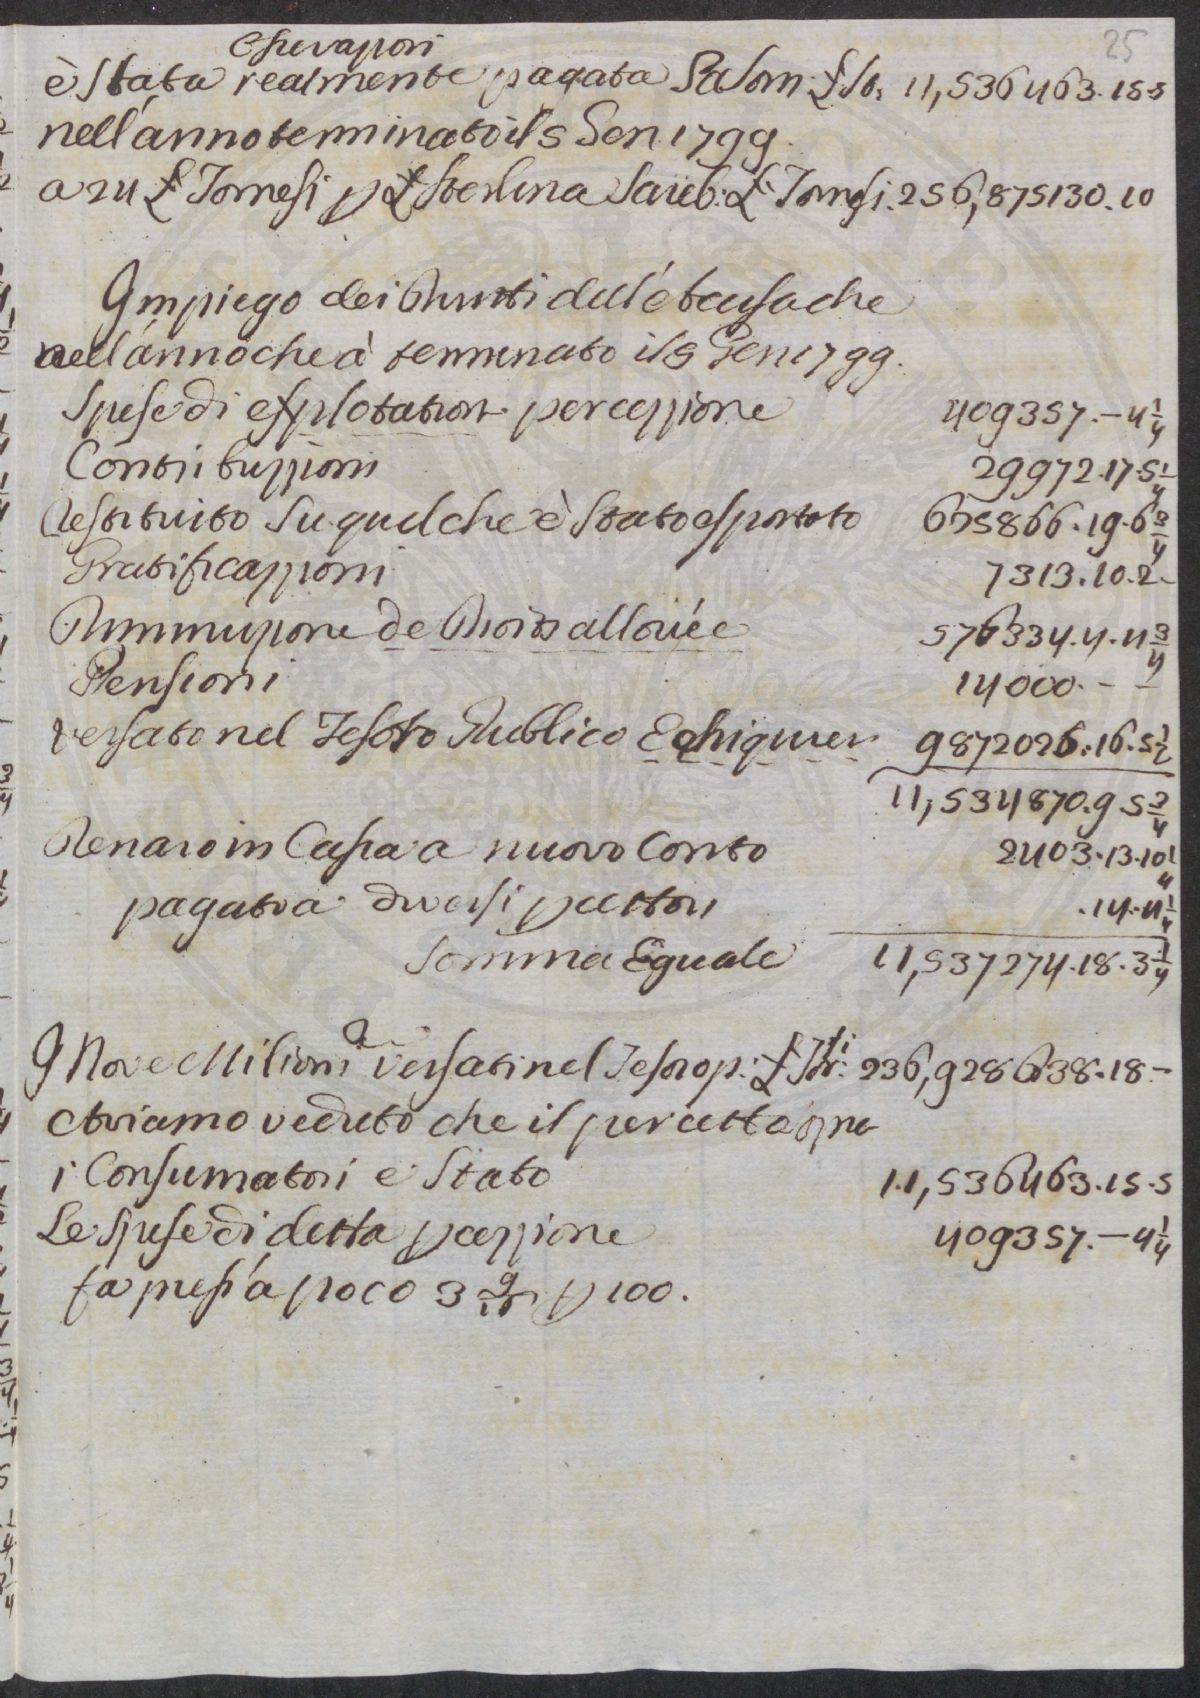 25
è stata realmente pagata La Som: £ St: 11,536463.15.5
nell'anno terminato il 5 Gen 1799.
a 24 £ Tornesi p £ Sterlina sareb: £ Tornesi. 256,875130.10
Impiego dei Diritti dell'
nell'anno che à terminato il 5 Gen 1799.
Spese di explotation percezzione 409357.-4 1/4
Contribuzzioni 29972.17.5 1/4
Restituito su quel che è stato esportato 675866.19.6 3/4
Gratificazzioni 7313.10.2-
Diminuzione de Droits allouée 576334.4.4 3/4
Pensioni 14000.--
versato nel Tesoro Publico Echiquier 9872026.16.5 1/2
11,534870.9.5 3/4
Denaro in Cassa a nuovo Conto 2403.13.10 1/4
pagato a diversi pcettori .14.4 1/4
Somma Eguale 11,537274.18.3 1/4
I Nove Milioni a versati nel Tesoro p: £ 236,928638.18-
Abiamo veduto che il percetto
i Consumatori è stato 11,536463.15.5
Le spese di detta pcezzione 409357.-4 1/4
fa press'a poco 3 p 100.